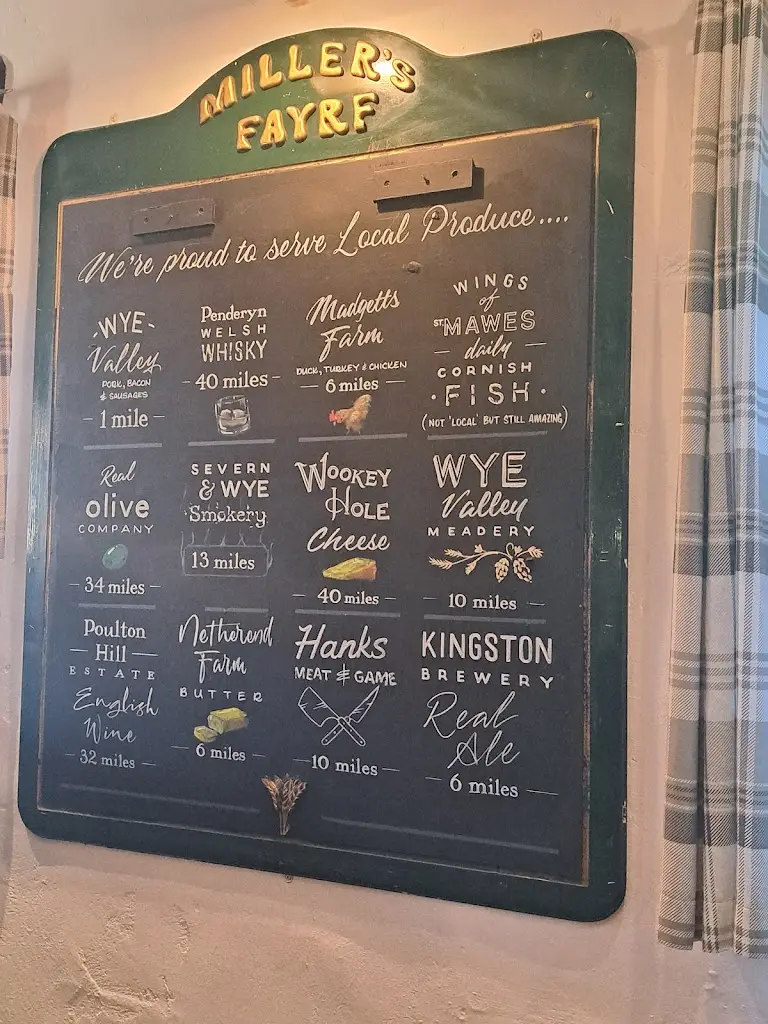 MILLER'S
FAYRE
We're proud to serve Local Produce....
-WYE-
Valley
PORK, BACON
& SAUSAGES
- 1 mile -
Penderyn
WELSH
WHISKY
- 40 miles -
Madgetts
Farm
DUCK, TURKEY & CHICKEN
- 6 miles -
WINGS
of
ST. MAWES
- daily -
CORNISH
· FISH ·
(NOT 'LOCAL' BUT STILL AMAZING)
Real
olive
COMPANY
- 34 miles -
SEVERN
& WYE
Smokery
13 miles
WOOKEY
HOLE
Cheese
- 40 miles -
WYE
Valley
MEADERY
- 10 miles -
Poulton
- Hill -
ESTATE
English
Wine
- 32 miles -
Netherend
Farm
BUTTER
- 6 miles -
Hanks
MEAT & GAME
- 10 miles -
KINGSTON
BREWERY
Real
Ale
- 6 miles -